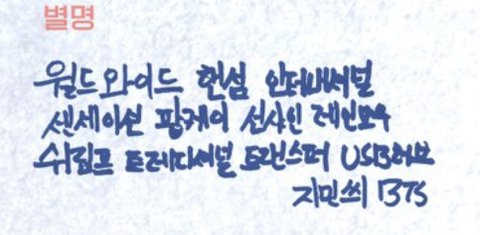 별명
월드와이드 핸섬 인터내셔널
센세이션 핑케이 선샤인 레인보우
쉬림프 트레디셔널 트랜스퍼 USB허브
지민씨 BTS